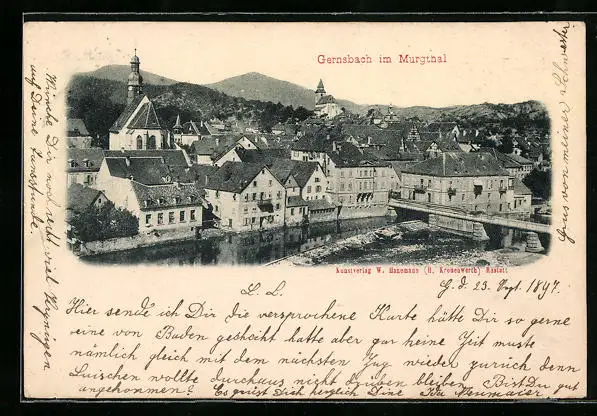 Gernsbach im Murgthal
Kunstverlag W. Hanemann (H. Kronenwerth) Rastatt
L. L.
G. d. 23. Sept. 1897.
Hier sende ich Dir die versprochene Karte hätte Dir so gerne
eine von Baden geschickt hatte aber gar keine Zeit musste
nämlich gleich mit dem nächsten Zug wieder zurück denn
Luischen wollte durchaus nicht drüben bleiben. Bist Du gut
angekommen? Es grüst Dich herzlich Deine
Wünsche Dir noch recht viel Vergnügen
auf Deine
Grus von meiner Schwester